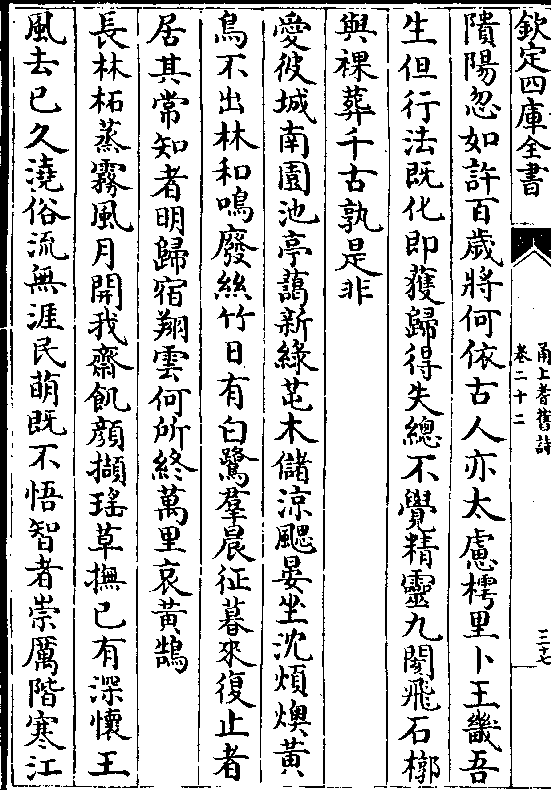 欽定四庫全書
甬上耆舊詩
卷二十二
三十七
隤陽忽如許百歲將何依古人亦太慮樗里卜王畿吾
生但行法既化即獲歸得失總不覺精靈九閡飛石槨
與裸葬千古孰是非
愛彼城南園池亭藹新綠芘木儲涼颸晏坐沈煩燠黃
鳥不出林和鳴廢絲竹日有白鷺羣晨征暮來復止者
居其常知者明歸宿翔雲何所終萬里哀黃鵠
長林柘蒸霧風月開我齋飢顏擷瑤草撫已有深懷王
風去已久澆俗流無涯民萌既不悟智者崇厲階寒江